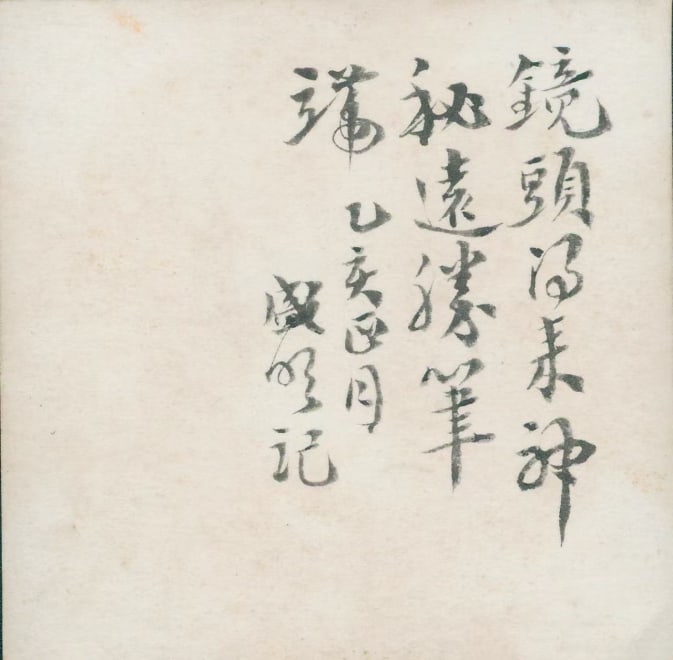 鏡頭得来神
秘遠勝筆
端
乙亥正月
盛明記